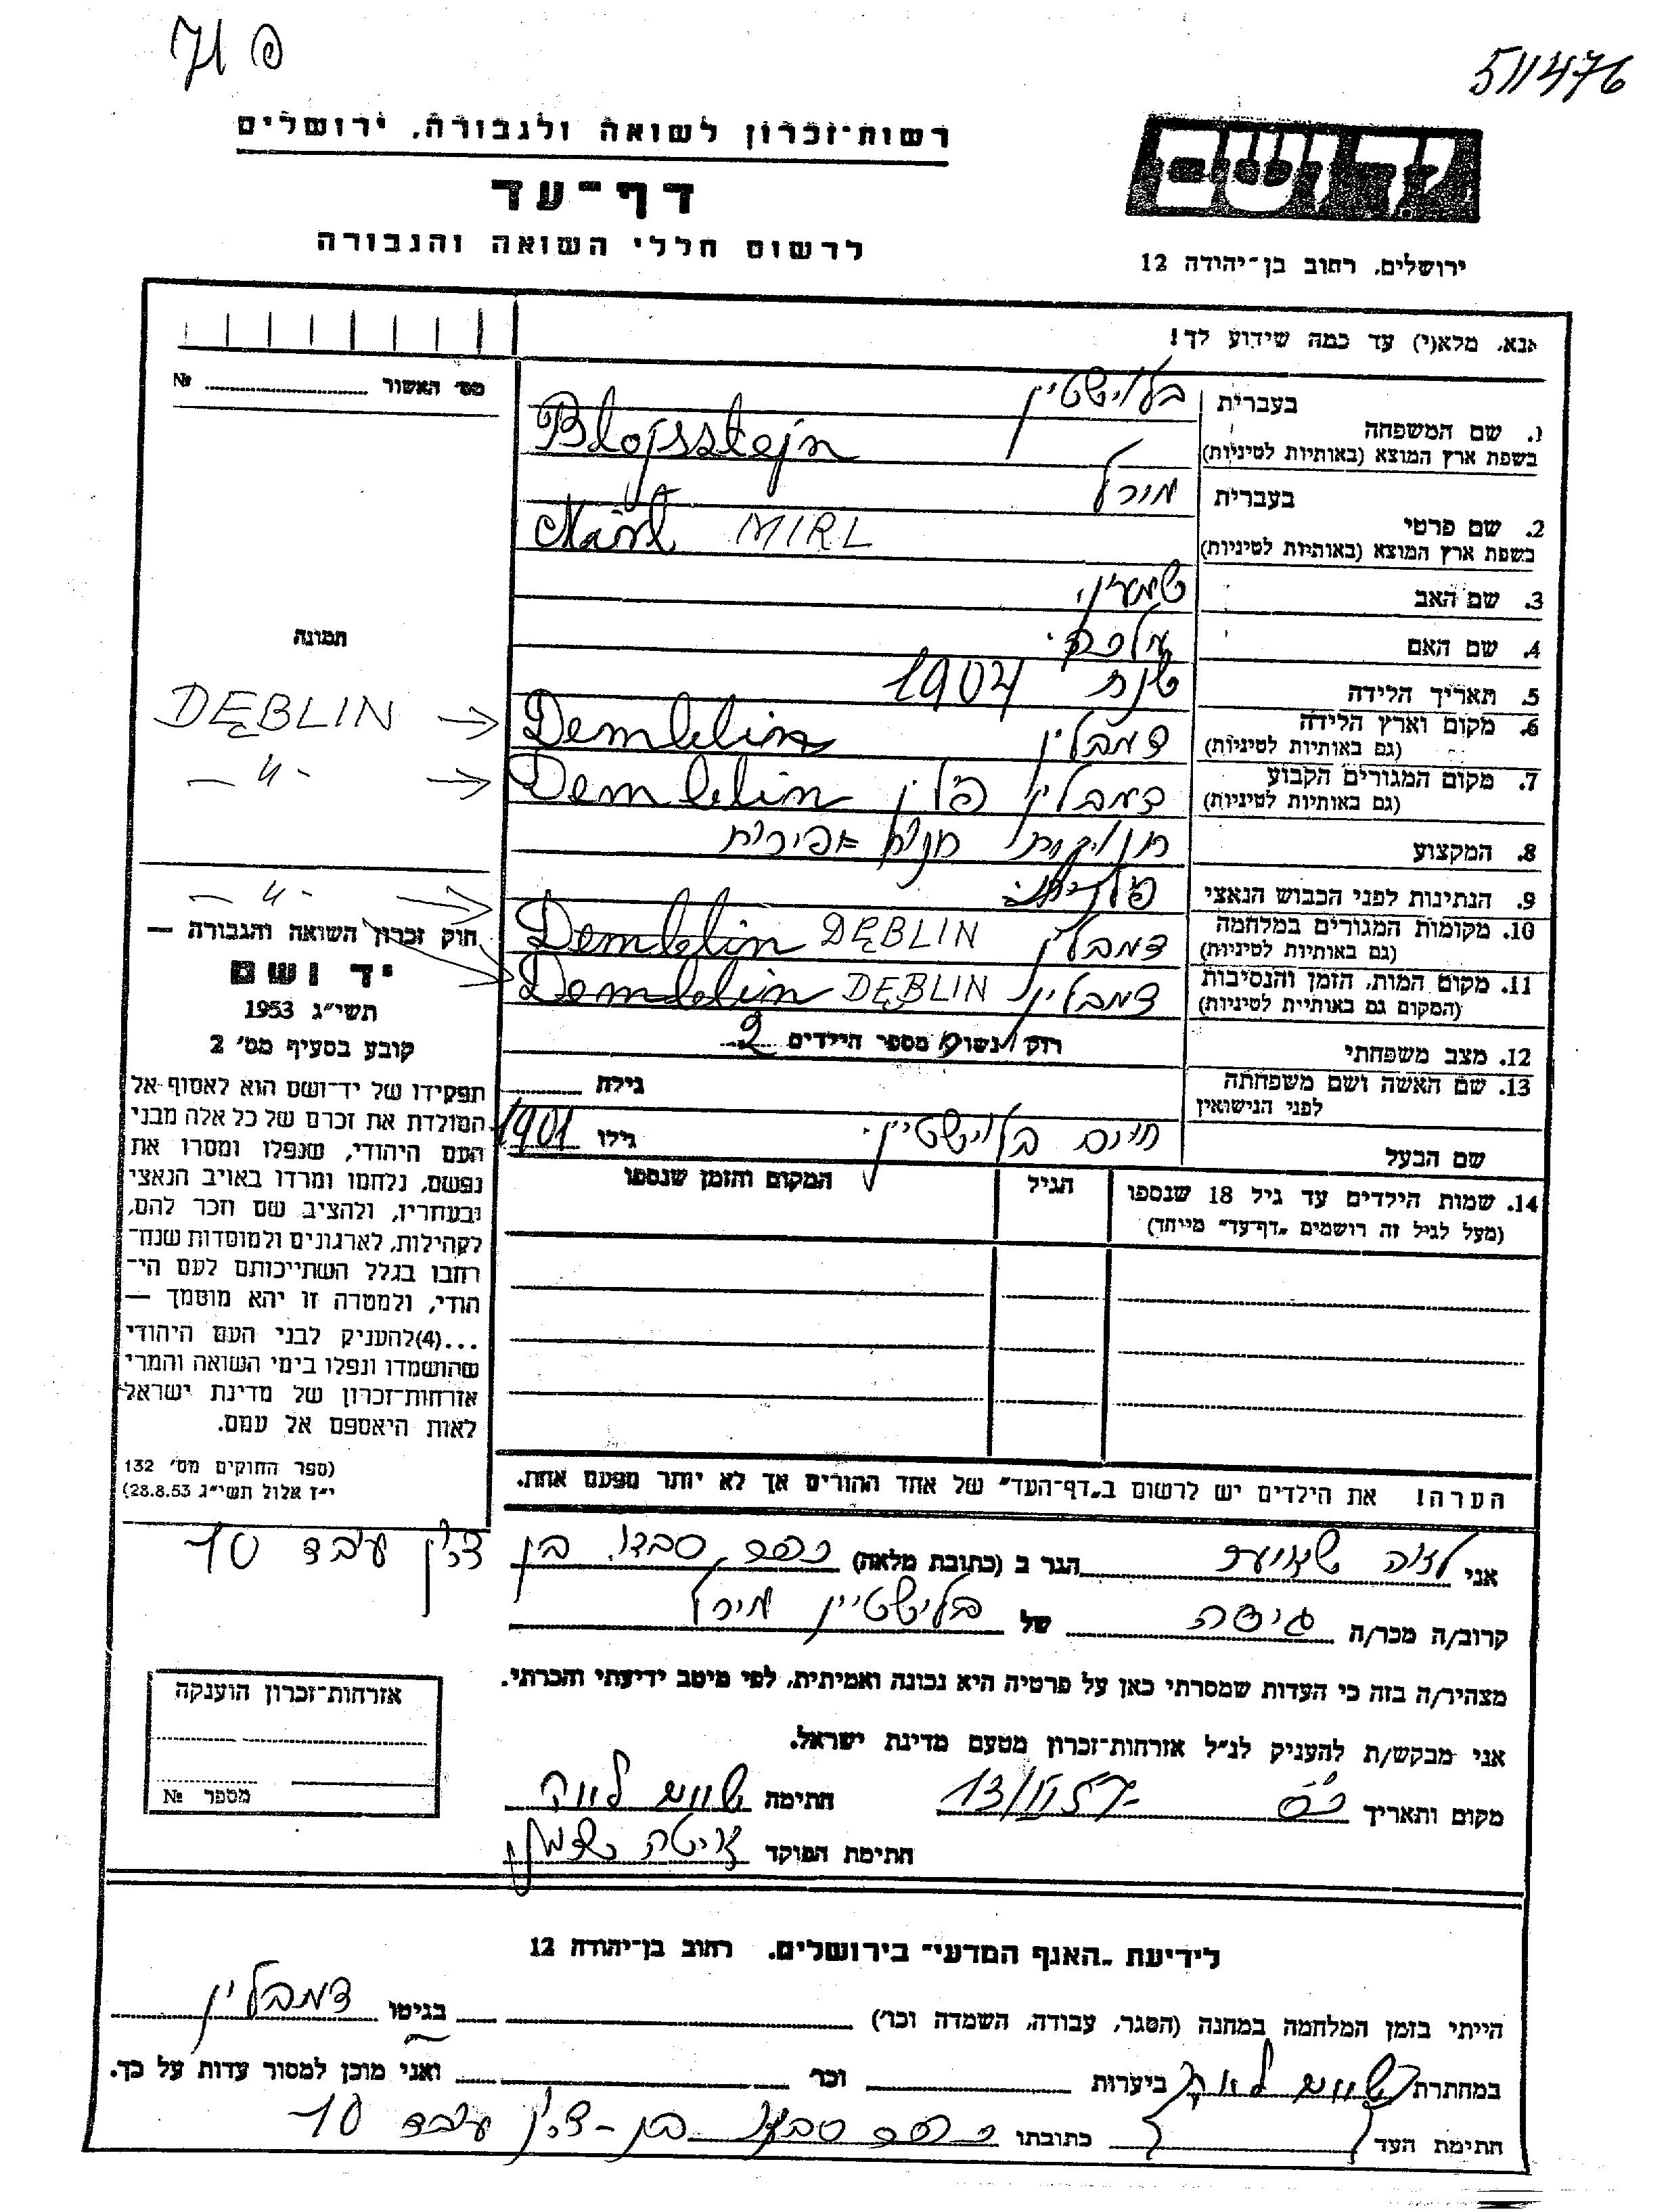 511476
71 פ
יד ושם
רשות־זכרון לשואה ולגבורה, ירושלים
דף־עד
לרשום חללי השואה והגבורה
ירושלים, רחוב בן־יהודה 12
אנא, מלא(י) עד כמה שידוע לך!
מס׳ האשור № 
1. שם המשפחה
בעברית בלוישטיין
בשפת ארץ המוצא (באותיות לטיניות) Blojsstejn
2. שם פרטי
בעברית מירל
בשפת ארץ המוצא (באותיות לטיניות) MIRL
3. שם האב
4. שם האם מלכה
תמונה
5. תאריך הלידה שנת 1904
6. מקום וארץ הלידה
(גם באותיות לטיניות) דמבלין Demblin ← DĘBLIN
7. מקום המגורים הקבוע
(גם באותיות לטיניות) דמבלין פולין Demblin ← — " -
8. המקצוע
9. הנתינות לפני הכבוש הנאצי פולנית
10. מקומות המגורים במלחמה
(גם באותיות לטיניות) דמבלין DĘBLIN Demblin — " -
11. מקום המות, הזמן והנסיבות
(המקום גם באותיית לטיניות) דמבלין DĘBLIN Demblin
12. מצב משפחתי רווק נשוי מספר הילדים 2
13. שם האשה ושם משפחתה
לפני הנישואין גילה
שם הבעל חיים בלוישטיין גילו 1901
14. שמות הילדים עד גיל 18 שנספו
(מעל לגיל זה רושמים „דף־עד״ מייוחד)
הגיל
המקום והזמן שנספו
חוק זכרון השואה והגבורה —
יד ושם
תשי״ג 1953
קובע בסעיף מס׳ 2
תפקידו של יד־ושם הוא לאסוף אל
המולדת את זכרם של כל אלה מבני
העם היהודי, שנפלו ומסרו את
נפשם, נלחמו ומרדו באויב הנאצי
ובעוזריו, ולהציב שם וזכר להם,
לקהילות, לארגונים ולמוסדות שנח־
רבו בגלל השתייכותם לעם הי־
הודי, ולמטרה זו יהא מוסמך —
...(4)להעניק לבני העם היהודי
שהושמדו ונפלו בימי השואה והמרי
אזרחות־זכרון של מדינת ישראל
לאות היאספם אל עמם.
(ספר החוקים מס׳ 132
י״ז אלול תשי״ג 28.8.53)
הערה! את הילדים יש לרשום ב„דף־העד״ של אחד ההורים אך לא יותר מפעם אחת.
אני הגר ב (כתובת מלאה) בן ציון 10
קרוב/ה מכר/ה גיסה של בלוישטיין מירל
מצהיר/ה בזה כי העדות שמסרתי כאן על פרטיה היא נכונה ואמיתית, לפי מיטב ידיעתי והכרתי.
אני מבקש/ת להעניק לנ״ל אזרחות־זכרון מטעם מדינת ישראל.
מקום ותאריך חתימה
חתימת הפוקד
אזרחות־זכרון הוענקה
מספר №
לידיעת „האגף המדעי״ בירושלים, רחוב בן־יהודה 12
הייתי בזמן המלחמה במחנה (הסגר, עבודה, השמדה וכו׳) בגיטו דמבלין
במחתרת ביערות וכו׳ ואני מוכן למסור עדות על כך.
חתימת העד כתובתו בן-ציון 10